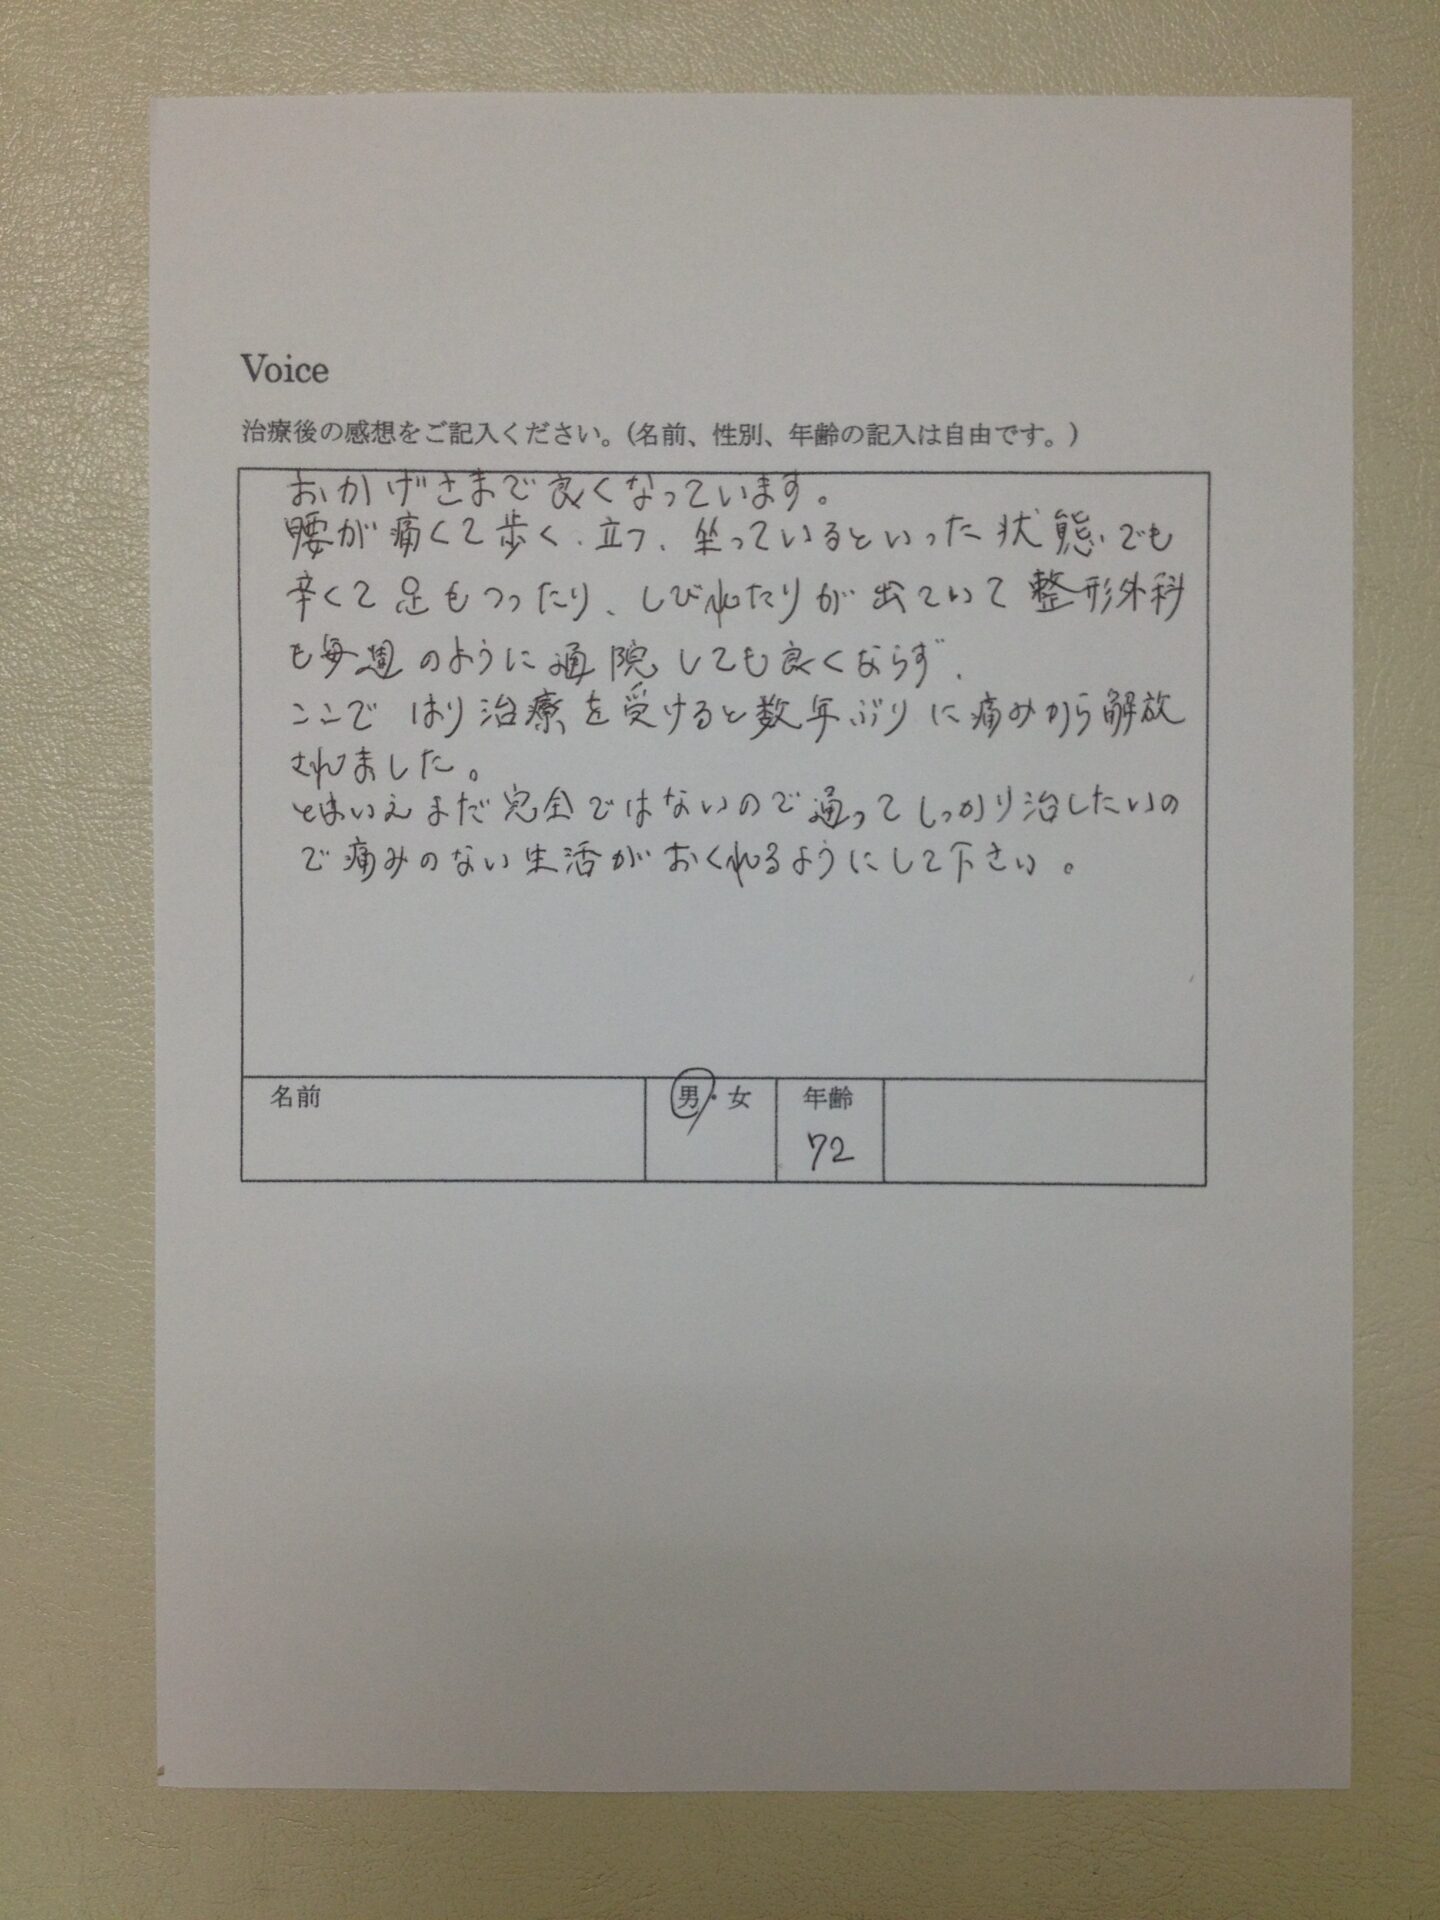 Voice
治療後の感想をご記入ください。(名前、性別、年齢の記入は自由です。)
おかげさまで良くなっています。
腰が痛くて歩く、立つ、坐っているといった状態でも
辛くて足もつったり、しびれたりが出ていて整形外科
も毎週のように通院しても良くならず、
ここではり治療を受けると数年ぶりに痛みから解放
されました。
とはいえまだ完全ではないので通ってしっかり治したいの
で痛みのない生活がおくれるようにして下さい。
名前 男・女 年齢
72